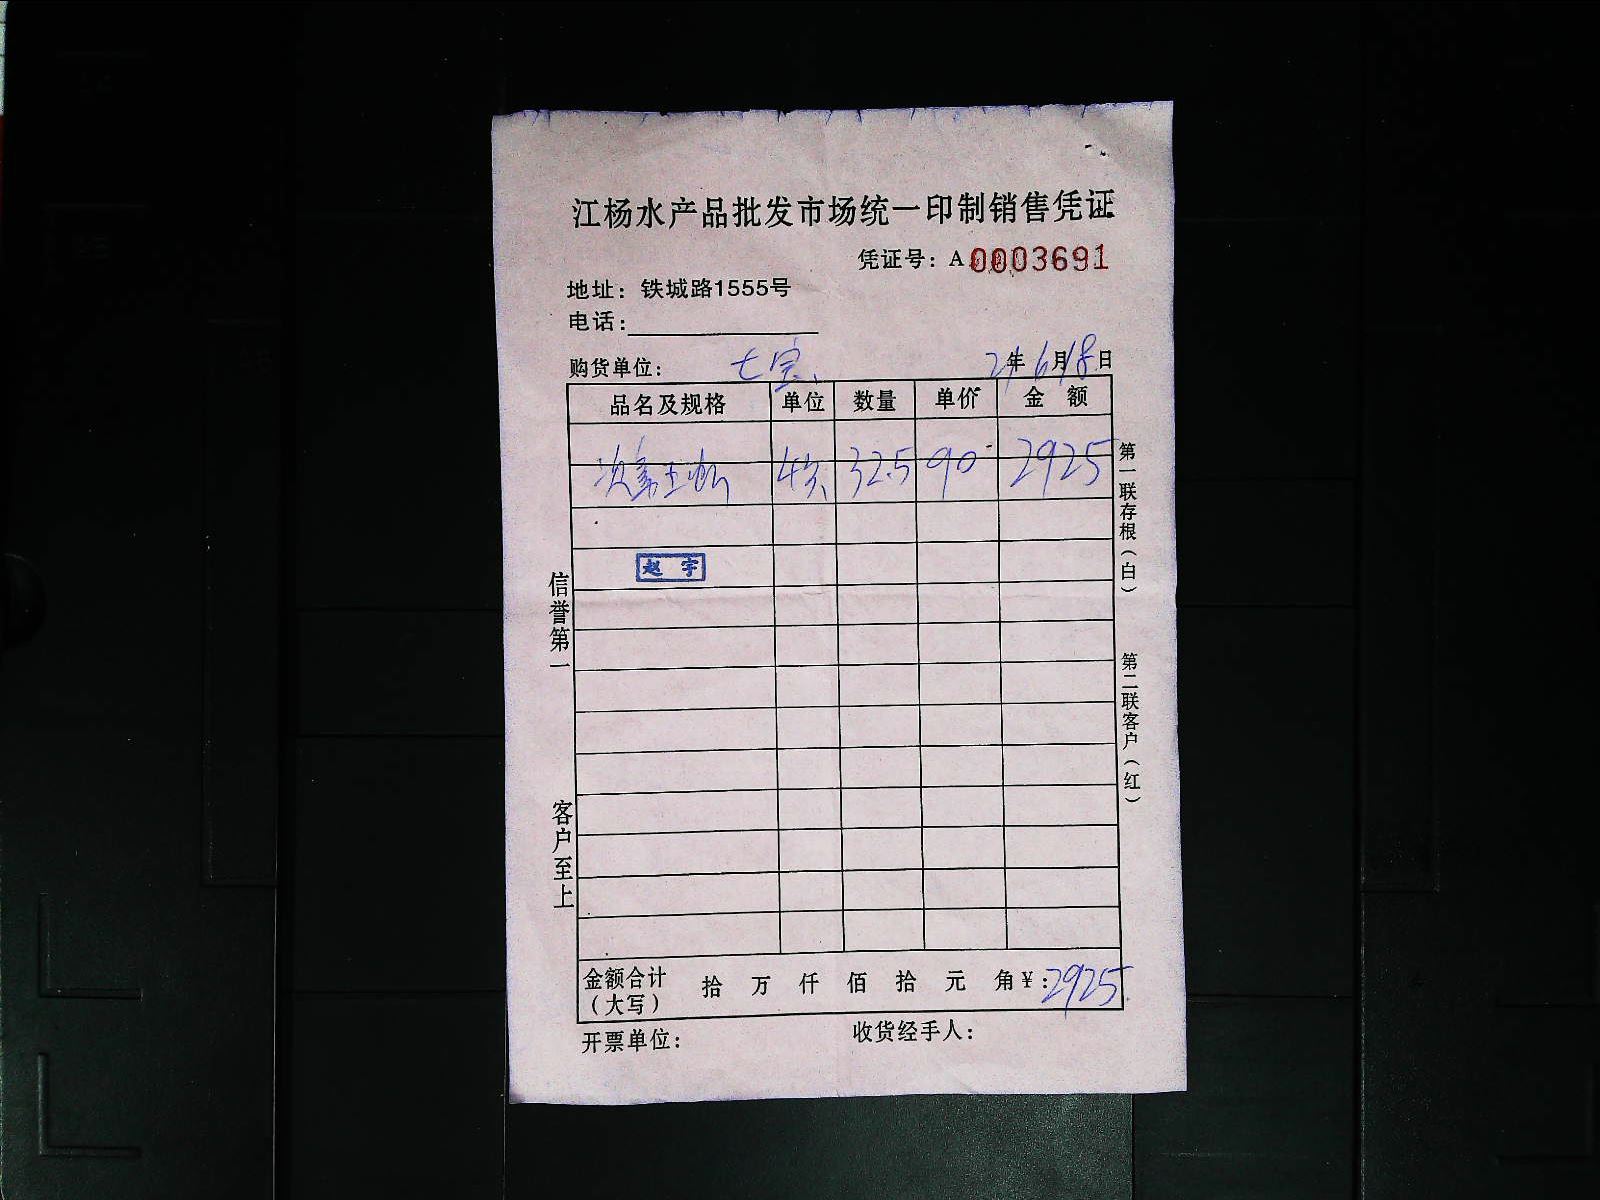 江杨水产品批发市场统一印制销售凭证
凭证号：A 0003691
地址：铁城路1555号
电话：
购货单位：七宝 21年6月18日
品名及规格 单位 数量 单价 金额
32.5 90 2925
赵宇
信誉第一
客户至上
第一联存根（白）
第二联客户（红）
金额合计（大写） 拾 万 仟 佰 拾 元 角 ¥：2925
开票单位： 收货经手人：